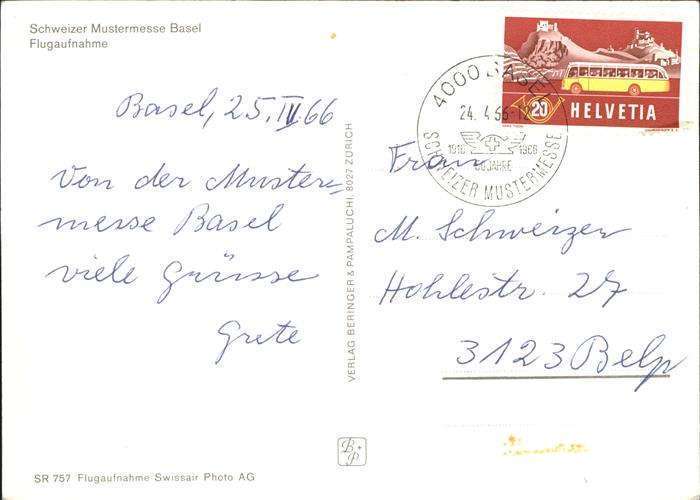 Schweizer Mustermesse Basel
Flugaufnahme
Basel, 25. IV 66
Von der Muster-
messe Basel
viele Grüsse
Grete
VERLAG BERINGER & PAMPALUCHI, 8027 ZÜRICH
20 HELVETIA
4000 BASEL
24.4.66-12
1916 1966
50 JAHRE
SCHWEIZER MUSTERMESSE
Frau
M. Schweizer
Hohlestr. 27
3123 Belp
B+P
SR 757 Flugaufnahme Swissair Photo AG